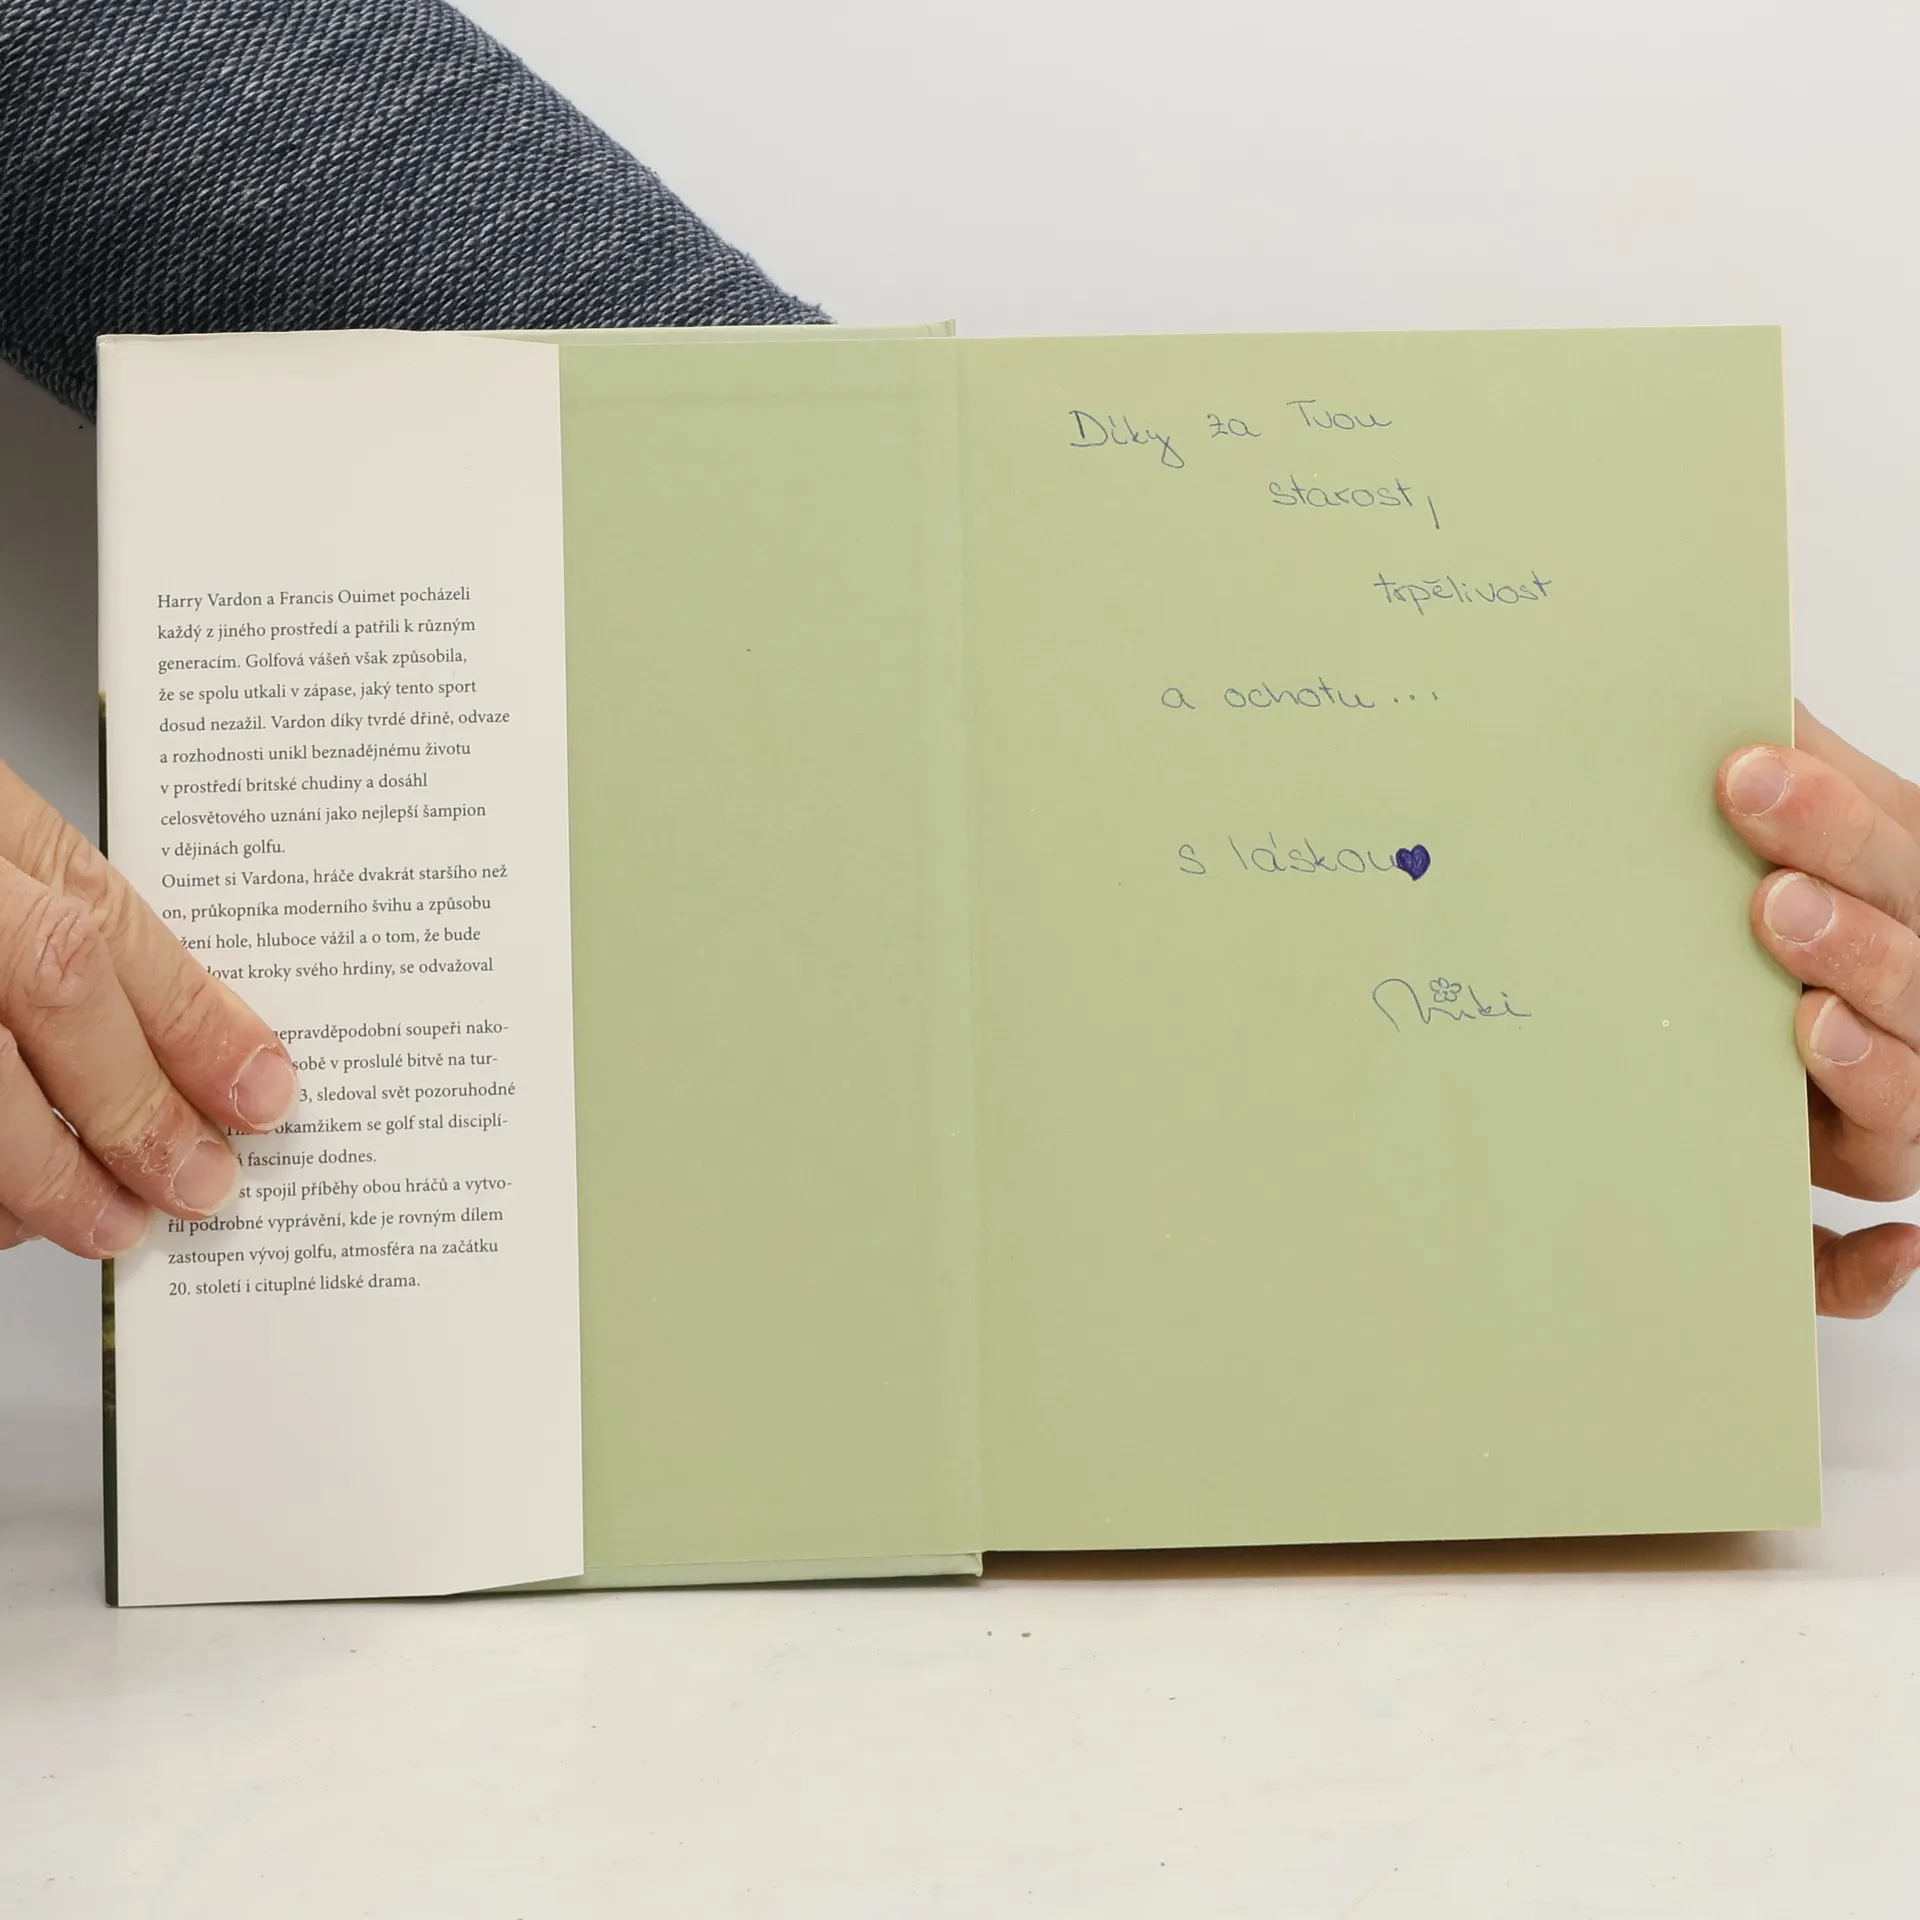 Harry Vardon a Francis Ouimet pocházeli
každý z jiného prostředí a patřili k různým
generacím. Golfová vášeň však způsobila,
že se spolu utkali v zápase, jaký tento sport
dosud nezažil. Vardon díky tvrdé dřině, odvaze
a rozhodnosti unikl beznadějnému životu
v prostředí britské chudiny a dosáhl
celosvětového uznání jako nejlepší šampion
v dějinách golfu.
Ouimet si Vardona, hráče dvakrát staršího než
on, průkopníka moderního švihu a způsobu
žení hole, hluboce vážil a o tom, že bude
dovat kroky svého hrdiny, se odvažoval
nepravděpodobní soupeři nako-
sobě v proslulé bitvě na tur-
3, sledoval svět pozoruhodné
okamžikem se golf stal disciplí-
fascinuje dodnes.
st spojil příběhy obou hráčů a vytvo-
řil podrobné vyprávění, kde je rovným dílem
zastoupen vývoj golfu, atmosféra na začátku
20. století i cituplné lidské drama.
Díky za Tvou
starost,
trpělivost
a ochotu...
s láskou
Miki